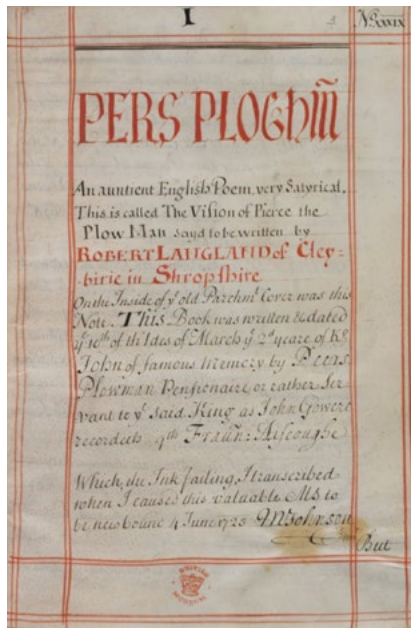 I
3
No. XXXIX
PERS PLOGHM̃
An auntient English Poem, very Satyrical,
This is called The Vision of Pierce the
Plow Man sayd to be written by
ROBERT LANGLAND of Cley=
=birie in Shropshire
On the Inside of yͤ old Parchmᵗ Cover was this
Note. This Book was written & dated
yͤ 10ᵗʰ of the Ides of March yͤ 2ᵈ yeare of Kᵍ
John of famous memory by Peers
Plowman Pensionaire, or rather Ser
vant to yͤ said King as John Gowere
recordeth qᵗʰ Fraūn: Aiscoughe
Which, the Ink failing, I transcribed
when I caused this valuable MS to
be new bound 4 June 1728 MJohnson
But
BRITISH
MUSEUM